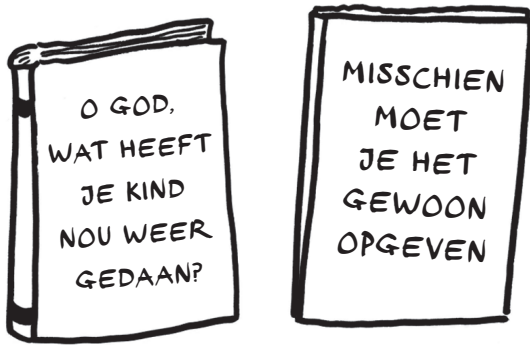 O GOD,
WAT HEEFT
JE KIND
NOU WEER
GEDAAN?
MISSCHIEN
MOET
JE HET
GEWOON
OPGEVEN